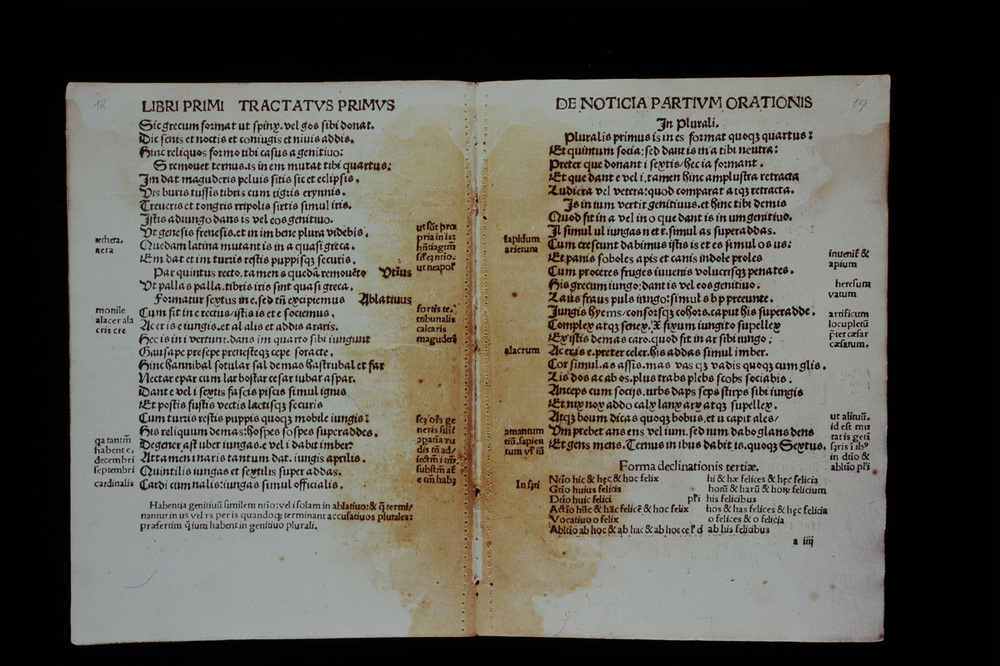 18
LIBRI PRIMI TRACTATVS PRIMVS
Sic grecum format ut spinx. vel gos sibi donat.
Dic sents et noctis et coniugis et nivis addis.
Hinc reliquos formo tibi casus a genitiuo:
S remouet ternus. is in em mutat tibi quartus:
Im dat maguderis peluis sitis sic et eclipsis.
Vis buris tussis tibris cum tigris erynnis.
Treueris et tongris tripolis sirtis simul iris.
Istis adiungo dans is vel eos genitiuo.
Vt genesis frenesis. et in im bene plura videbis.
Quedam latina mutant is in a quasi greca.
Em dat et im turris restis puppisq; securis.
Par quintus recto. tamen s quedã remouẽto Vtius
Vt pallas palla. tibris iris sunt quasi greca.
Formatur sextus in e. sed tñ excipiemus Ablatiuus
Cum fit in e rectus / istis is et e sociemus.
Acer is e iungis. et al alis et addis araris.
Hec is in i vertunt. dans im quarto sibi iungunt
Gausape presepe prenesteq; cepe soracte.
Hinc hannibal sotular sal demas hastrubal et far
Nectar epar cum lar bostar cesar iubar aspar.
Dant e vel i sextis fascis piscis simul ignis
Et postis fustis vectis lactisq; securis
Cum turris restis puppis quoq; mobile iungis:
His reliquum demas: hospes sospes superaddes.
Degener ast uber iungas. e vel i dabit imber:
Attamen i naris tantum dat. iungis aprilis.
Quintilis iungas et sextilis super addas.
Cardi cum nalis: iungas simul officialis.
Habentia genitiuũ similem ntio: vel i solam in ablatiuo: & q̃ termi/
nantur in us vel rs per is quandoq; terminant accusatiuos plurales:
præsertim q̃ ium habent in genitiuo plurali.
æthera.
aera
monile
alacer ala
cris cre
qa tantũ
habent e.
decembri
septembri
cardinalis
ut sũt pro
pria in is:
ut neapol
fortis te.
tribunalis
calcaris
maguderi
19
DE NOTICIA PARTIVM ORATIONIS
In Plurali.
Pluralis primus is in es format quoq; quartus:
Et quintum socia; sed dant is in a tibi neutra:
Preter que donant i sextis / hec ia formant.
Et que dant e vel i. tamen hinc amplustra retracta
Ludicra vel vetera: quod comparat atq; retracta.
Is in ium vertit genitiuus. et hinc tibi demis
Quod fit in a vel in o que dant is in um genitiuo.
Il simul ul iungas n et r. simul as superaddas.
Cum crescunt dabimus istis is et es simul os us:
Et panis soboles apis et canis indole proles
Cum proceres fruges iuuenis volucrisq; penates.
His grecum iungo: dant is vel eos genitiuo.
Laus fraus puls iungo: simul s b p preeunte.
Iungis hyems / consorsq; cohors. caput his superadde.
Complex atq; senex. X fixum iungito supellex
Existis demas caro. quod fit in ar sibi iungo:
Acer is e. preter celer. his addas simul imber.
Cor simul. as assis. mas vas q; vadis quoq; cum glis.
Lis dos ac ab os. plus trabs plebs scobs sociabis.
Anceps cum socijs. urbs daps seps stirps sibi iungis
Et nix nox addo calx lanx arx atq; supellex.
Atq; boum dicas quoq; bobus. et u capit ales /
Vm prebet ans ens vel ium. sed ium dabo glans dens
Et gens mens. Ternus in ibus dabit is. quoq; Sextus.
Forma declinationis tertiæ.
Ntĩo hic & hęc & hoc felix hi & hæ felices & hęc felicia
Gtĩo huius felicis horũ & harũ & horũ felicium
Dtĩo huic felici pl̃i his felicibus
Actĩo hũc & hãc felicẽ & hoc felix hos & has felices & hęc felicia
Vocatiuo o felix o felices & o felicia
Ablĩo ab hoc & ab hac & ab hoc ce l̃ ci ab his felicibus
In sñri
a iiij
lapidum
arietum
alacrum
amantum
tiũ. sapien
tum vl̃ iũ
inuenit̃ &
apium
heresum
vatum
artificum
locupletũ
p̃ter cæsar
cæsarum.
ut alituũ.
id est mu
tat is geñ
in dtĩo &
ablĩtio pl̃i